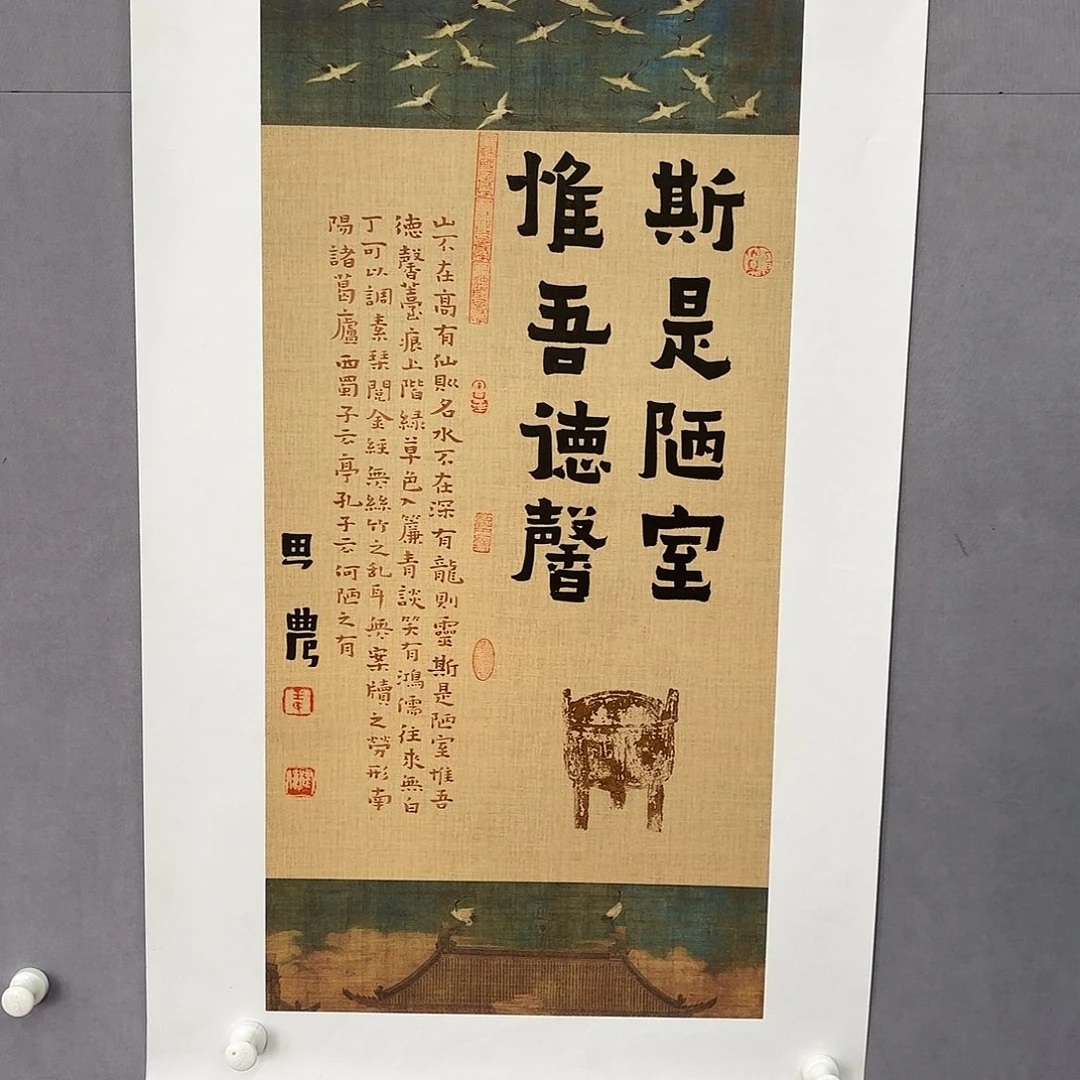 斯是陋室
惟吾德馨
山不在高有仙則名水不在深有龍則靈斯是陋室惟吾
德馨薹痕上階綠草色入簾青談笑有鴻儒往來無白
丁可以調素琴閱金經無絲竹之乱耳無案牘之勞形南
陽諸葛廬西蜀子云亭孔子云何陋之有
農